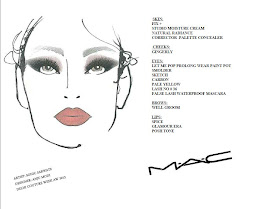 SKIN:
FIX +
STUDIO MOISTURE CREAM
NATURAL RADIANCE
CORRECTOR PALETTE CONCEALER
CHEEKS:
GINGERLY
EYES:
LET ME POP PROLONG WEAR PAINT POT
SMOLDER
SKETCH
CARBON
PALE YELLOW
LASH NO # 36
FALSE LASH WATERPROOF MASCARA
BROWS:
WELL GROOM
LIPS:
SPICE
GLAMOUR ERA
POSH TONE
MAC